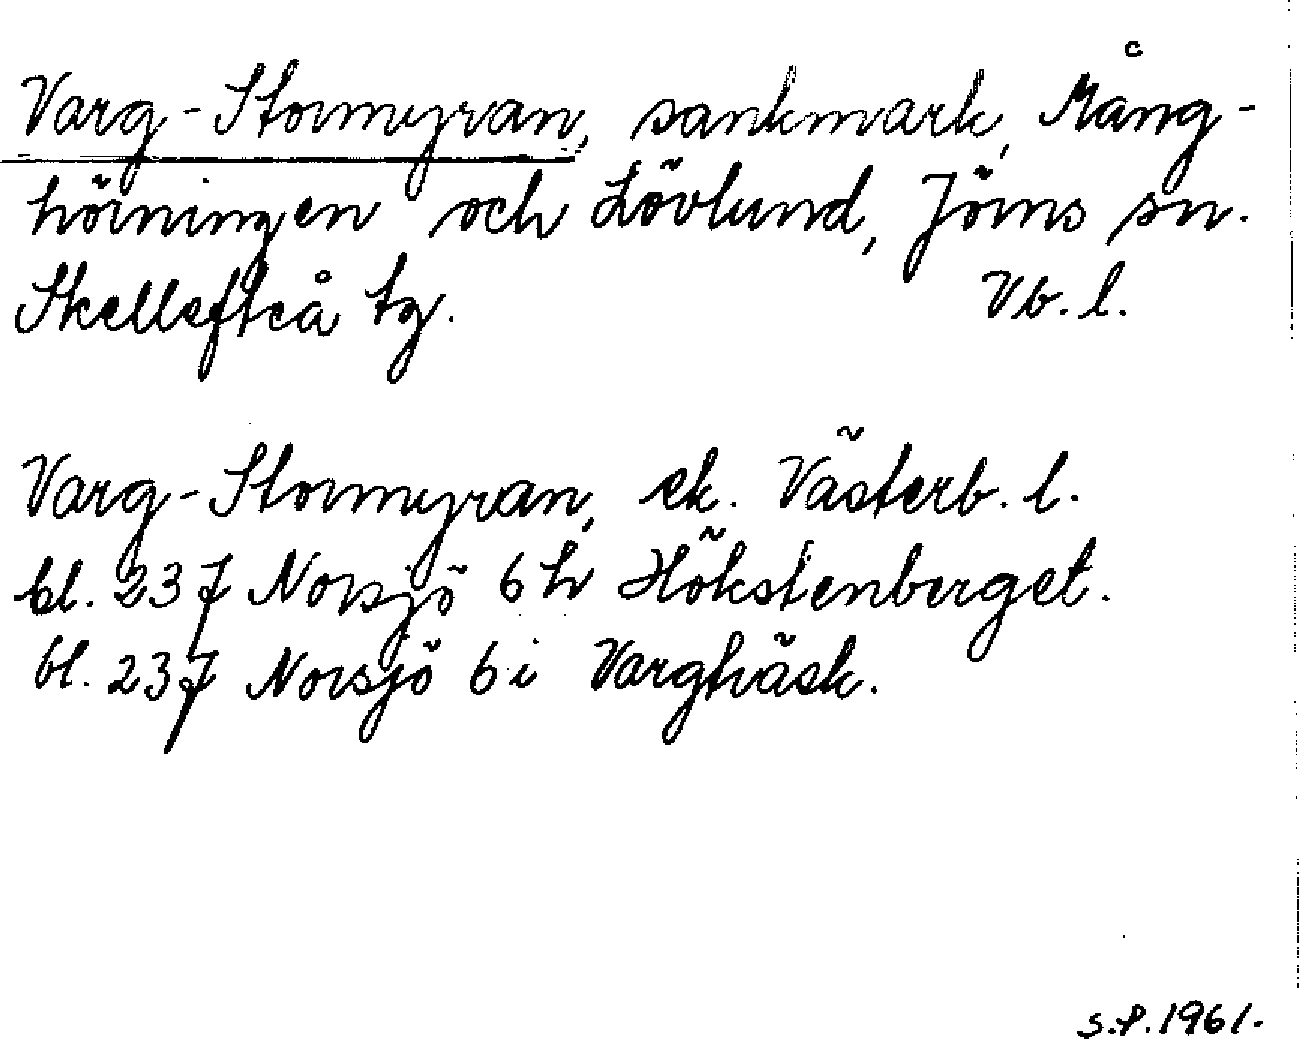 Varg-Stormyran, sankmark, Mång-
hörningen och Lövlund, Jörns sn.
Skellefteå tg. Vb. l.
Varg-Stormyran, ek. Västerb. l.
bl. 237 Norsjö 6 h Hökstenberget.
bl. 237 Norsjö 6 i Vargträsk.
S.P. 1961.